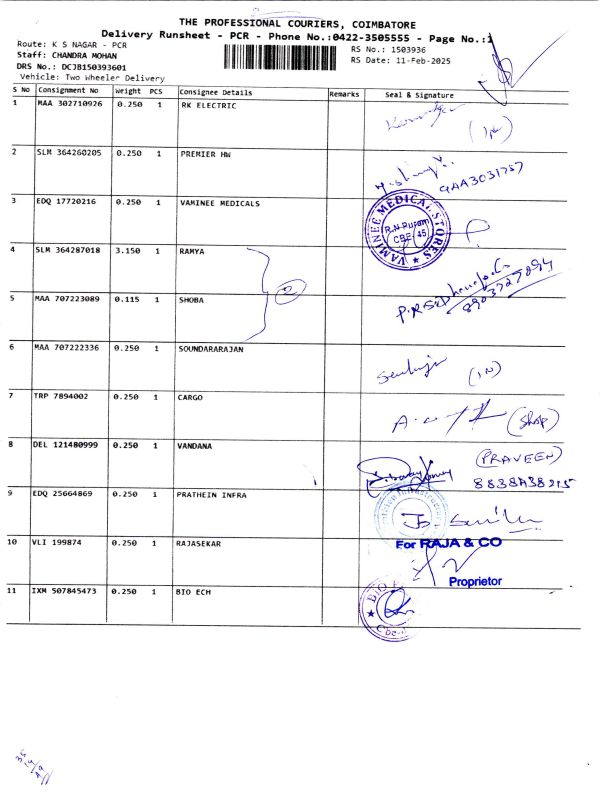 THE PROFESSIONAL COURIERS, COIMBATORE
Delivery Runsheet - PCR - Phone No.:0422-3505555 - Page No.:1
Route: K S NAGAR - PCR
RS No.: 1503936
Staff: CHANDRA MOHAN
RS Date: 11-Feb-2025
DRS No.: DCJB150393601
Vehicle: Two Wheeler Delivery
S No Consignment No Weight PCS Consignee Details Remarks Seal & Signature
1 MAA 302710926 0.250 1 RK ELECTRIC
2 SLM 364260205 0.250 1 PREMIER HW
3 EDQ 17720216 0.250 1 VAMINEE MEDICALS
VAMINEE MEDICAL STORES
R.N Puram
CBE-45
4 SLM 364287018 3.150 1 RAMYA
2
5 MAA 707223089 0.115 1 SHOBA
8903727894
6 MAA 707222336 0.250 1 SOUNDARARAJAN
(IN)
7 TRP 7894002 0.250 1 CARGO
(SHOP)
8 DEL 121480999 0.250 1 VANDANA
(PRAVEEN)
9 EDQ 25664869 0.250 1 PRATHEIN INFRA
10 VLI 199874 0.250 1 RAJASEKAR
For RAJA & CO
Proprietor
11 IXM 507845473 0.250 1 BIO ECH